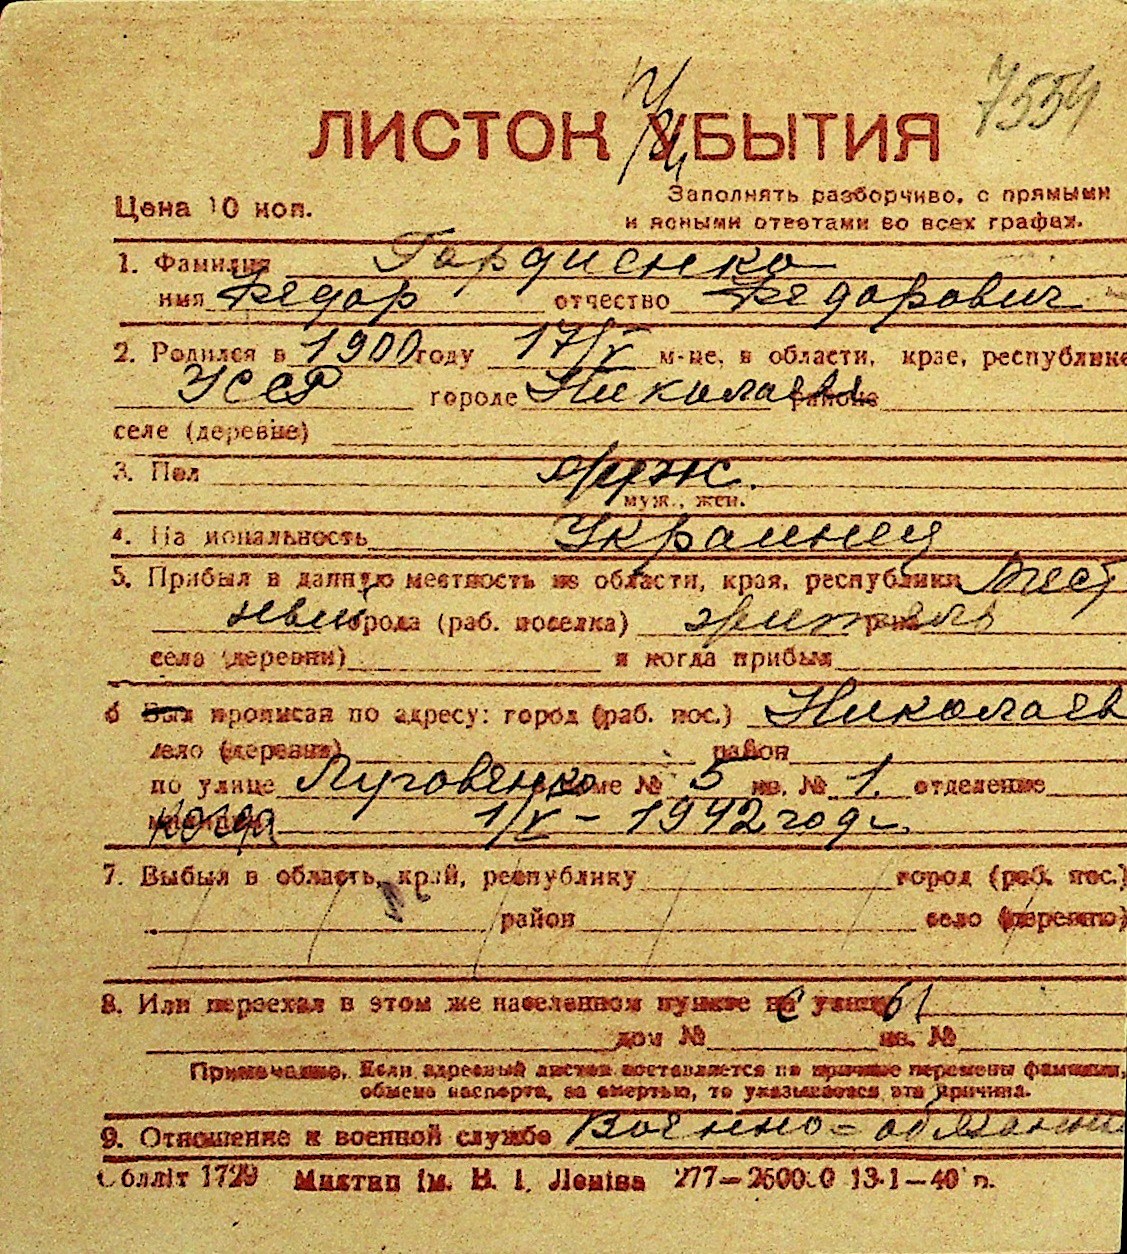 7554
ЛИСТОК УБЫТИЯ
Цена 10 коп.
Заполнять разборчиво, с прямыми
и ясными ответами во всех графах.
1. Фамилия Гордиенко
имя Федор отчество Федорович
2. Родился в 1900 году 17/V м-це, в области, крае, республике
УССР городе Николаев районе
селе (деревне)
3. Пол муж.
муж., жен.
4. Национальность Украинец
5. Прибыл в данную местность из области, края, республики Мест
ный города (раб. поселка) житель
села (деревни) и когда прибыл
6 Был прописан по адресу: город (раб. пос.) Николаев
село (деревня) район
по улице Луговенко доме № 5 кв. № 1. отделение
когда 1/V – 1942 год
7. Выбыл в область, край, республику город (раб. пос.)
район село (деревню)
8. Или переехал в этом же населенном пункте на улицу
дом № кв. №
Примечание. Если адресный листок составляется по причине перемены фамилии,
обмена паспорта, за смертью, то указывается эта причина.
9. Отношение к военной службе Военно-обязанн
Облліт 1729 Миктип ім. В. І. Леніна 277—260000 13.1—40 р.